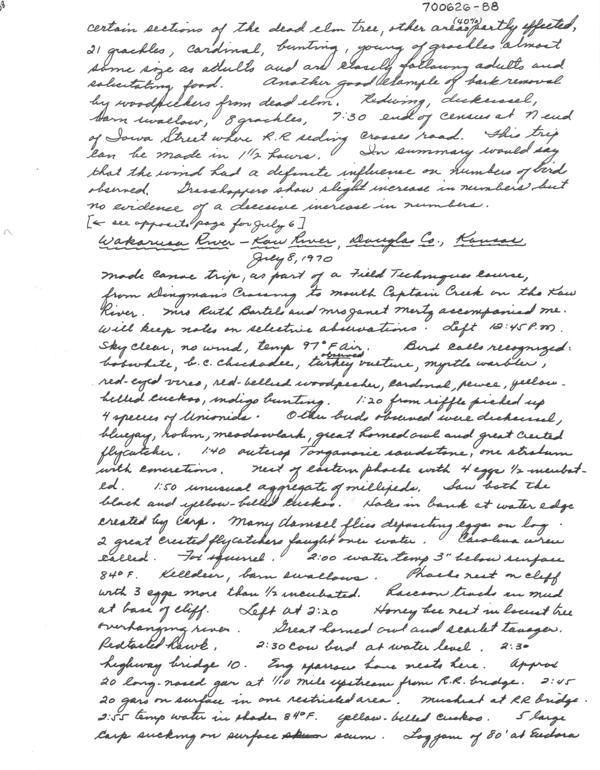 700626-88
certain sections of the dead elm tree, other areas (40%) partly effected,
21 grackles, cardinal, bunting, young of grackles almost
same size as adults and are closely following adults and
solicitating food. Another good example of bark removal
by woodpeckers from dead elm. Redwing, dickcissel,
barn swallow, 8 grackles, 7:30 end of census at N end
of Iowa Street where R.R. siding crosses road. This trip
can be made in 1 1/2 hours. In summary would say
that the wind had a definite influence on numbers of bird
observed. Grasshoppers show slight increase in numbers but
no evidence of a decisive increase in numbers.
[← see opposite page for July 6]
Wakarusa River - Kaw River, Douglas Co., Kansas
July 8, 1970
Made canoe trip, as part of a Field Techniques Course,
from Dingman's Crossing to mouth Captain Creek on the Kaw
River. Mrs Ruth Bartels and Mrs Janet Mertz accompanied me.
Will keep notes on selective observations. Left 12:45 P.m.
Sky clear, no wind, temp 97°F air. Bird calls recognized:
bobwhite, b.c. chickadee, observed turkey vulture, myrtle warbler,
red-eyed vireo, red-bellied woodpecker, cardinal, pewee, yellow-
billed cuckoo, indigo bunting. 1:20 from riffle picked up
4 species of Unionids. Other birds observed were dickcissel,
bluejay, robin, meadowlark, great horned owl and great crested
flycatcher. 1:40 outcrop Tonganoxie sandstone, one stratum
with concretions. Nest of eastern phoebe with 4 eggs 1/2 incubat-
ed. 1:50 unusual aggregate of millipeds. Saw both the
black and yellow-billed cuckoo. Holes in bank at water edge
created by carp. Many damsel flies depositing eggs on log.
2 great crested flycatchers fought over water. Carolina wren
called. Fox squirrel. 2:00 water temp 3" below surface
84°F. Killdeer, barn swallows. Phoebe nest on cliff
with 3 eggs more than 1/2 incubated. Raccoon tracks in mud
at base of cliff. Left at 2:20 Honey bee nest in locust tree
overhanging river. Great horned owl and scarlet tanager.
Redtailed hawk. 2:30 Cow bird at water level. 2:30
highway bridge 10. Eng sparrow have nests here. Approx
20 long-nosed gar at 1/10 mile upstream from R.R. bridge. 2:45
20 gars on surface in one restricted area. Muskrat at RR bridge.
2:55 temp water in shade 84°F. yellow-billed cuckoo. 5 large
carp sucking on surface scum. Log jam of 80' at Eudora